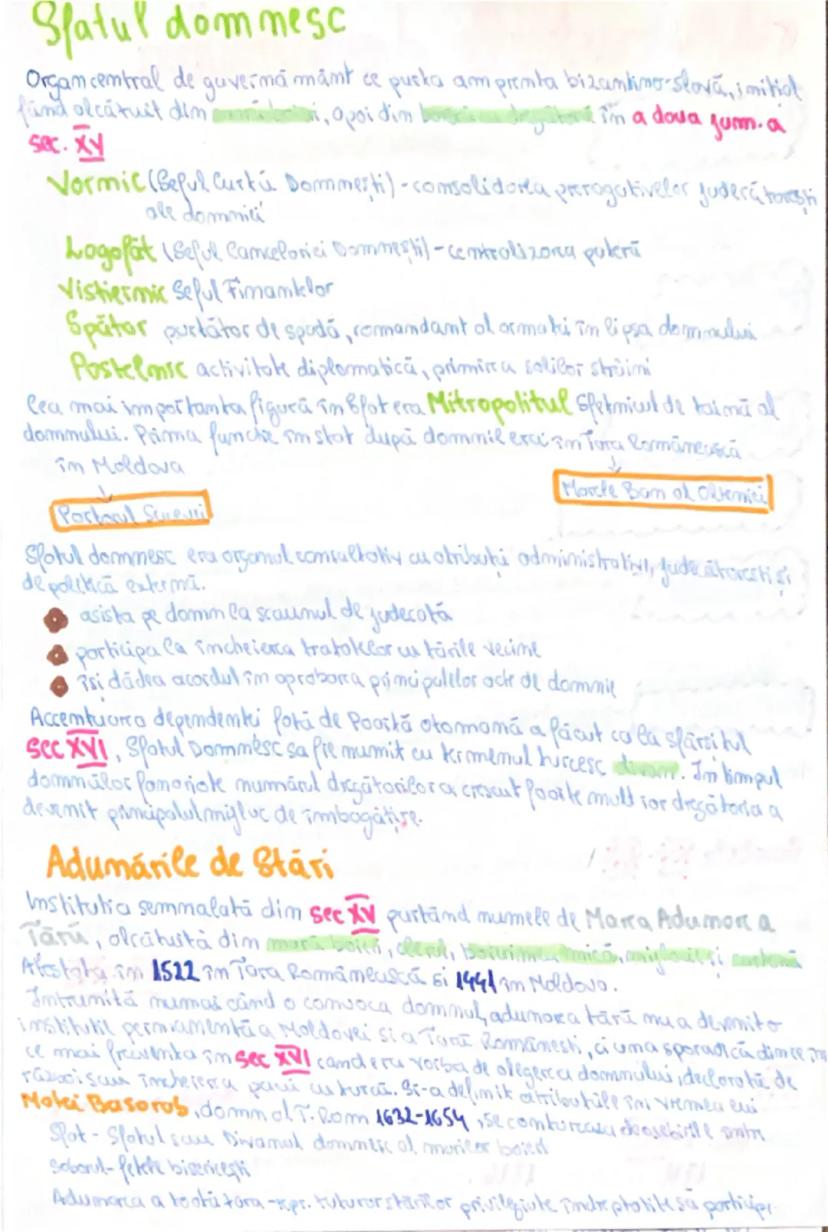 Sfatul domnesc
Organ central de guvernământ ce purta amprenta bizantino-slavă, inițial
fiind alcătuit din marii boieri, apoi din boieri cu dregătorii în a doua jum. a
sec. XV
Vornic (Șeful Curții Domnești) - consolidarea prerogativelor judecătorești
ale domniei
Logofăt (Șeful Cancelariei Domnești) - centralizarea puterii
Vistiernic Șeful Finantelor
Spătar purtător de spadă, comandant al armatei în lipsa domnului
Postelnic activitate diplomatică, primirea solilor străini
Cea mai importanta figură în Sfat era Mitropolitul Sfetnicul de taină al
domnului. Prima functie în stat după domnie era în Țara Românească
în Moldova
Marele Ban al Olteniei
Portarul Sucevei
Sfatul domnesc era organul consultativ cu atribuții administrative, judecătorești și
de politică externă.
asista pe domn la scaunul de judecată
participa la încheierea tratatelor cu țările vecine
își dădea acordul în aprobarea principalelor acte de domnie
Accentuarea dependentei față de Poartă otomană a făcut ca la sfârșitul
sec XVI, Sfatul Domnesc sa fie numit cu termenul turcesc divan. În timpul
domniilor fanariote numărul dregătorilor a crescut foarte mult iar dregătoria a
devenit principalul mijloc de îmbogățire.
Adunările de Stări
Institutia semnalată din sec XV purtând numele de Marea Adunare a
Țării, alcătuită din marii boieri, clerul, boierimea mică, mijlocie și curtenii
Atestata în 1522 în Țara Românească si 1441 în Moldova.
Întrunită numai când o convoca domnul, adunarea țării nu a devenit o
institutie permanentă a Moldovei si a Țării Românesti, ci una sporadică dintre
ce mai frecventa în sec XVI cand era vorba de alegerea domnului, declarată de
război sau încheierea păcii cu turcii. Si-a definit atributiile în vremea lui
Matei Basarab, domn al T. Rom 1632-1654, se conturează deosebirile între
Sfat - Sfatul sau Divanul domnesc al marilor boieri
Soborul - fetele bisericești
Adunarea a toată țara - repr. tuturor stărilor privilegiate îndreptătite să participe